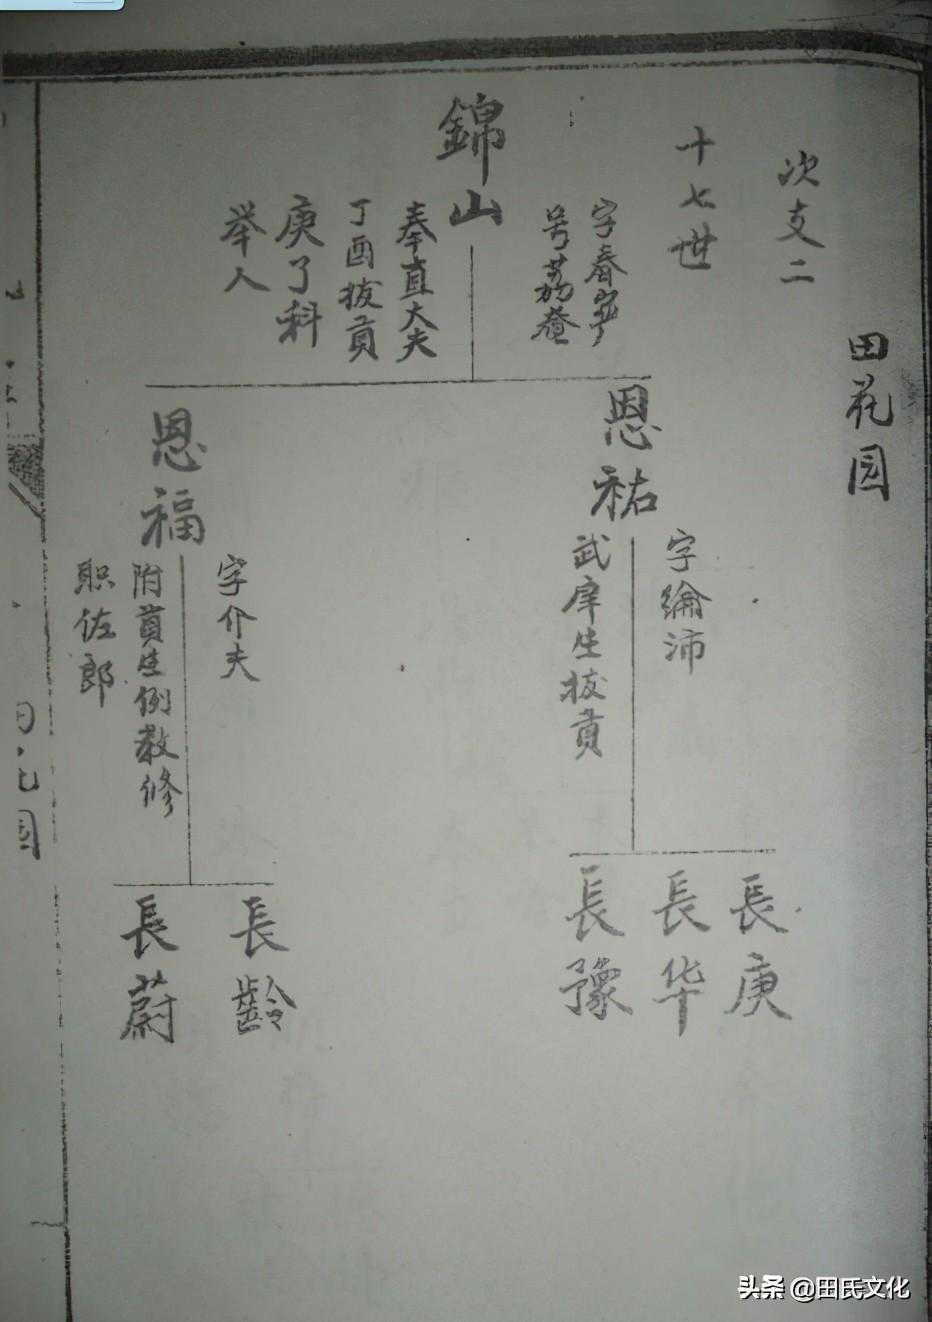 田花园
次支二
十七世
錦山
字春
号荔菴
奉直大夫
丁酉拔貢
庚子科
举人
恩祐
字綸沛
武庠生拔貢
恩福
字介夫
附貢生例敎修
职佐郎
長庚
長华
長豫
長齡
長蔚
头条 @田氏文化